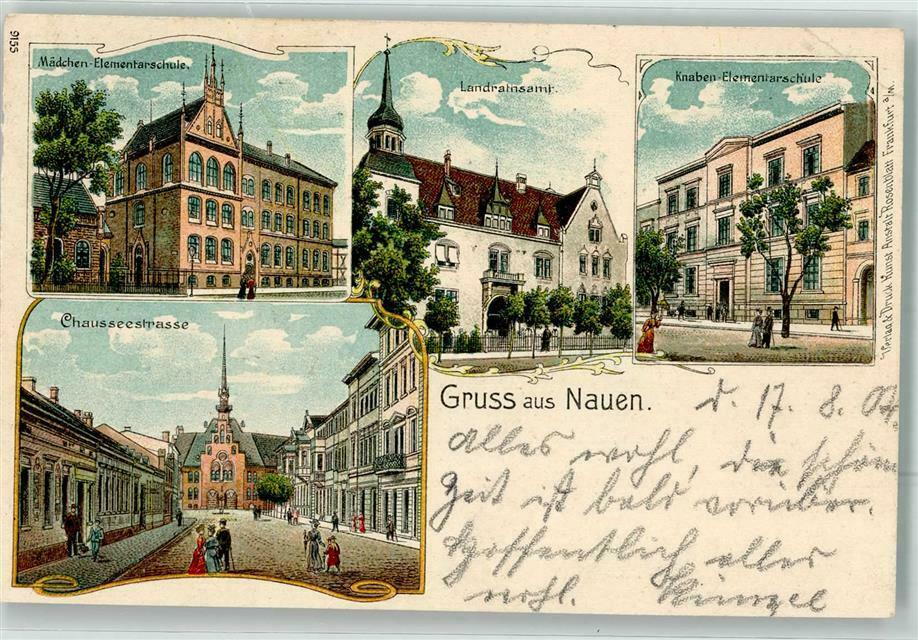 9155
Mädchen-Elementarschule.
Landrathsamt.
Knaben-Elementarschule
Verlag & Druck Kunst Anstalt Rosenblatt Frankfurt a/M.
Chausseestrasse
Gruss aus Nauen.
d. 17. 8. 04
Alles wohl, die schöne
Zeit ist bald vorüber.
Hoffentlich aller
wohl.